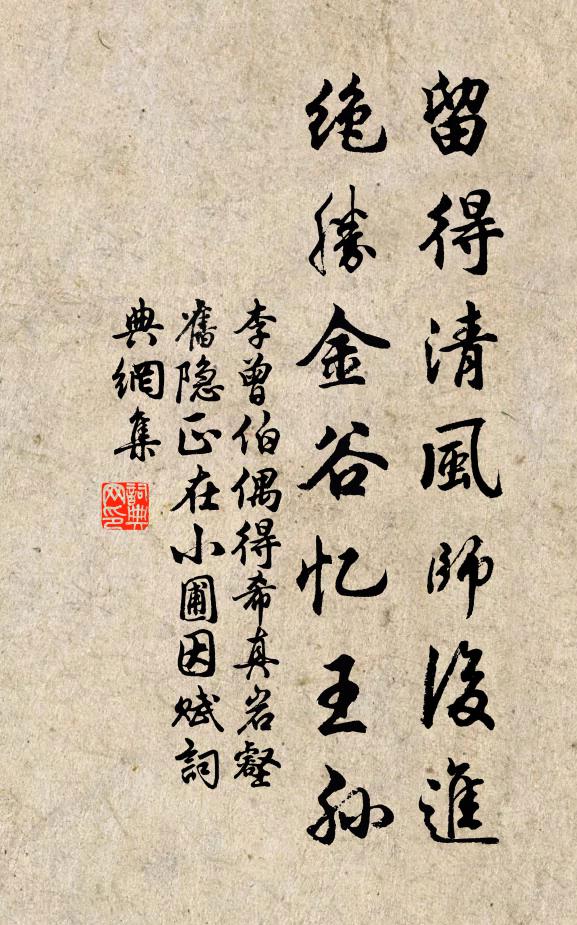 留得清風師後進
绝勝金谷忆王孙
李曾伯偶得希真岩壑
舊隐正在小圃因赋詞
典網集
詞典
网印